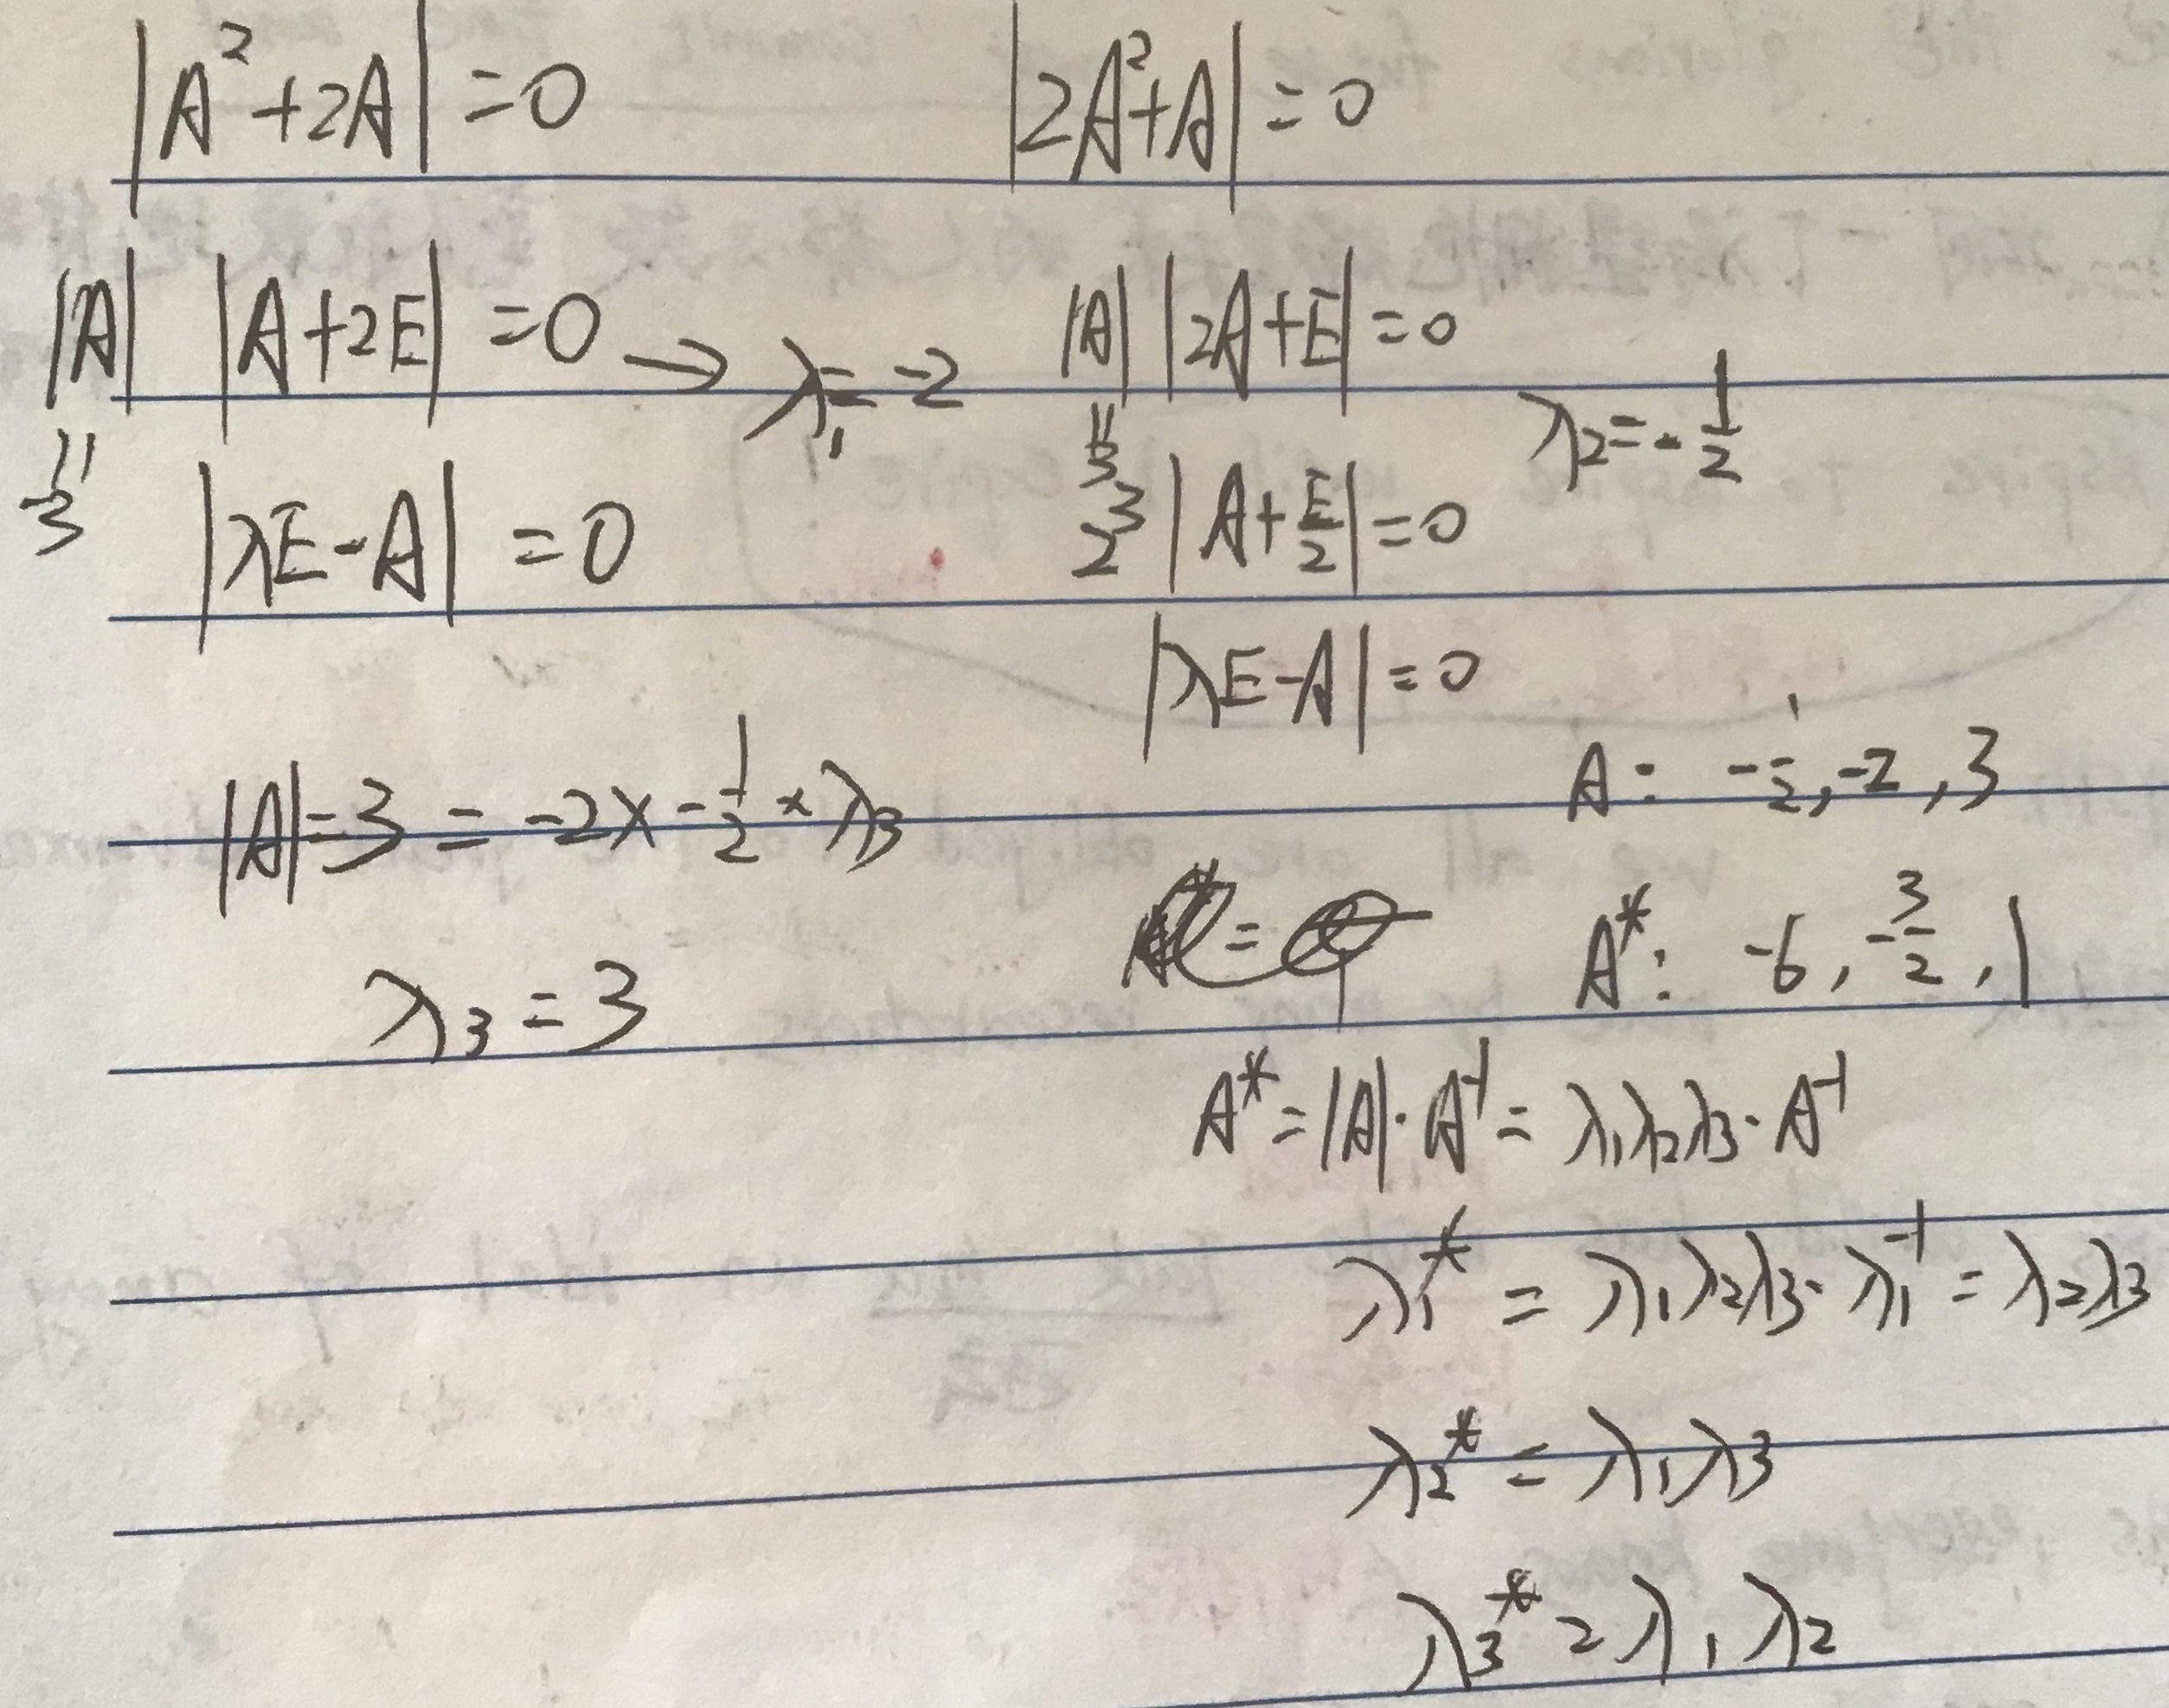 |A²+2A|=0    |2A²+A|=0
|A| |A+2E|=0 → λ₁=-2    |A| |2A+E|=0    λ₂=-1/2
=3    |λE-A|=0    =3    2³|A+E/2|=0
|λE-A|=0
|A|=3=-2×-1/2×λ₃    A: -1/2,-2,3
λ₃=3    A*: -6,-3/2,1
A*=|A|·A⁻¹=λ₁λ₂λ₃·A⁻¹
λ₁*=λ₁λ₂λ₃·λ₁⁻¹=λ₂λ₃
λ₂*=λ₁λ₃
λ₃*=λ₁λ₂